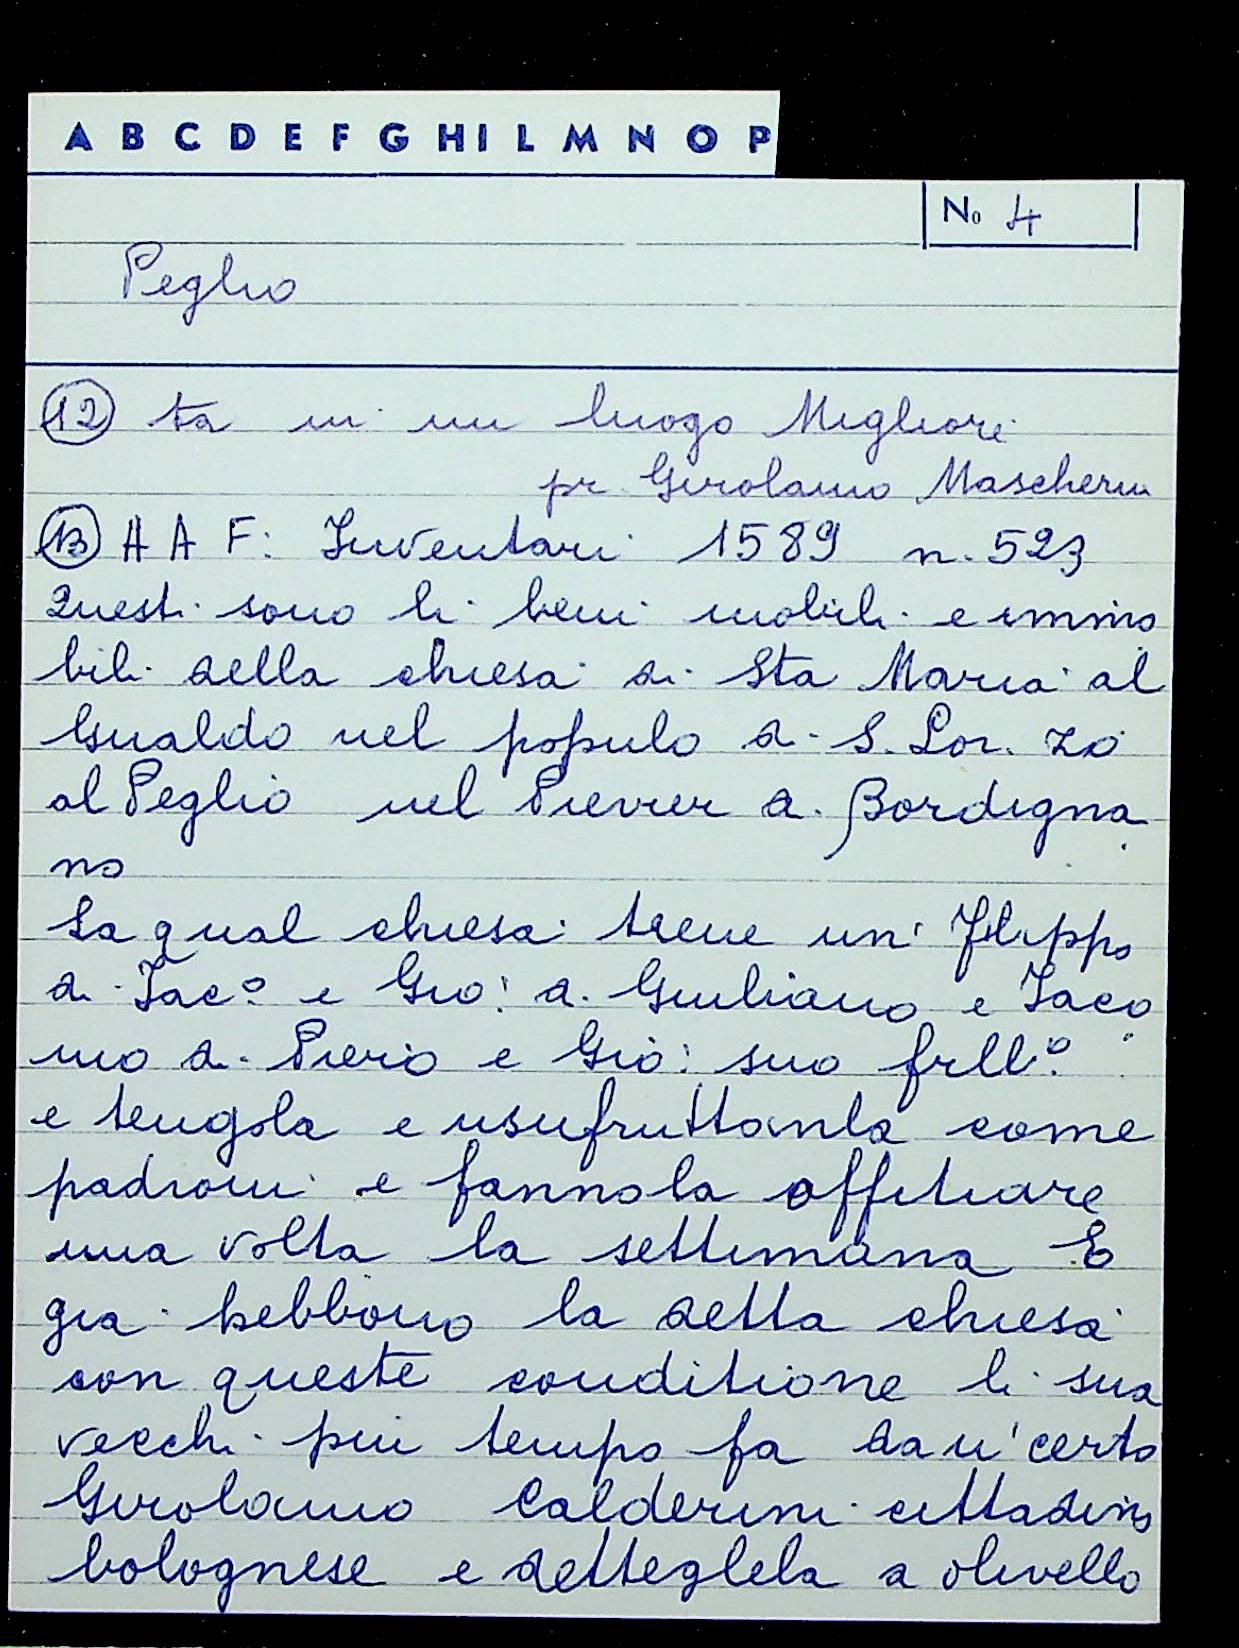 A B C D E F G H I L M N O P
No 4
Peglio
12 ta in un luogo Migliori
pr. Girolamo Mascherin
13 A A F: Inventari 1589 n. 523
Questi sono li beni mobili e immo
bili della chiesa di Sta Maria al
Gualdo nel populo di S. Lor. zo
al Peglio nel Pievier di Bordigna
no
La qual chiesa tiene un' Filippo
di Iac.º e Gio: di Giuliano e Iaco
mo di Piero e Gio: suo frll.º
e tengola e usufruttonla come
padroni e fannola offitiare
una volta la settimana E
gia hebbono la detta chiesa
con queste conditione li sua
vecchi piu tempo fa da u' certo
Girolamo Calderini cittadino
bolognese e detteglela a olivello